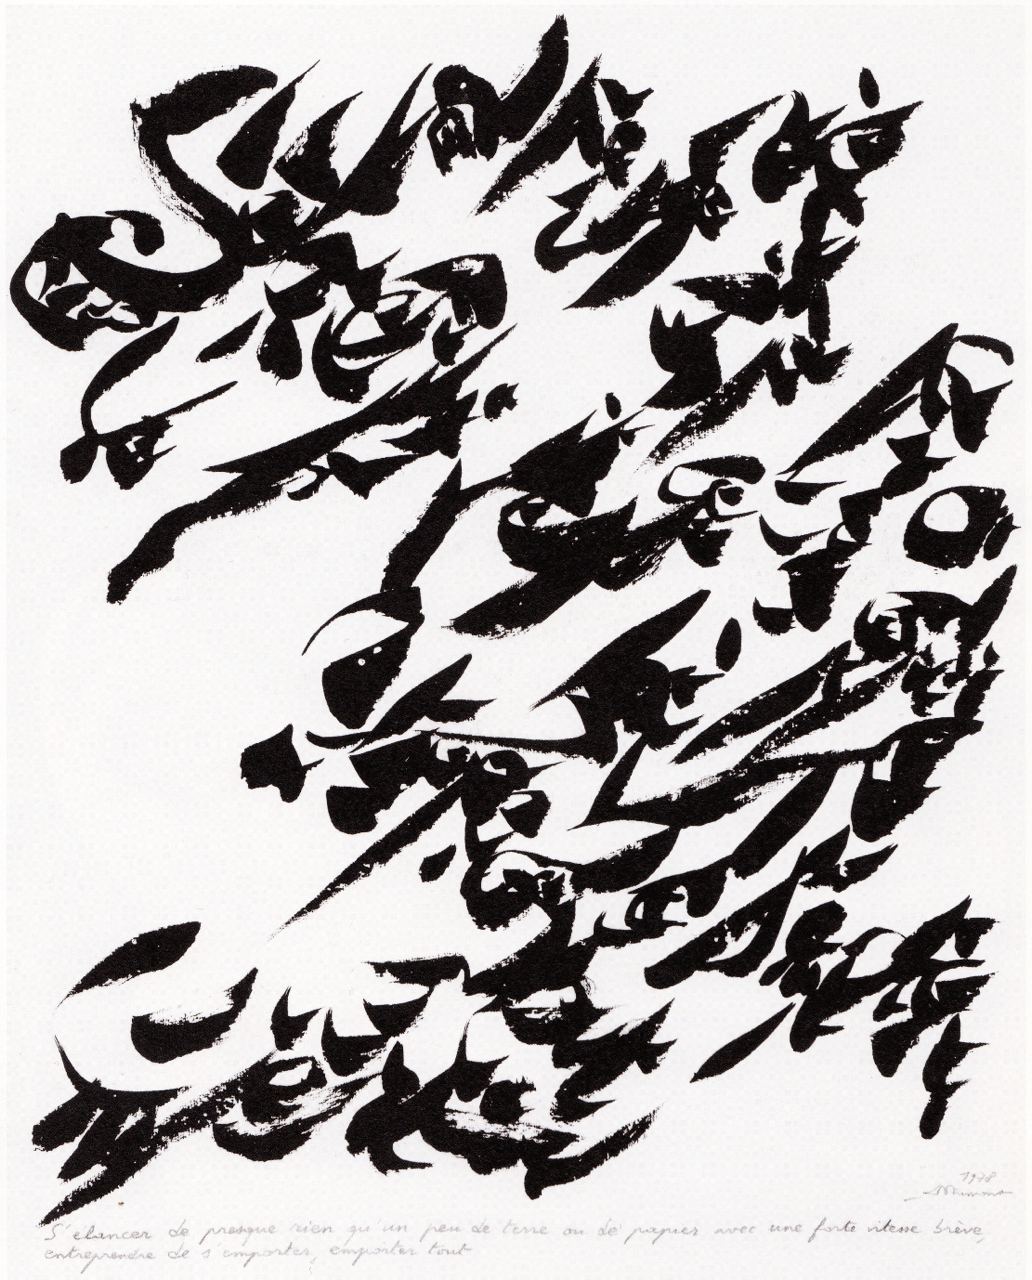 1978
S'élancer de presque rien qu'un peu de terre ou de papier avec une forte vitesse brève,
entreprendre de s'emporter, emporter tout